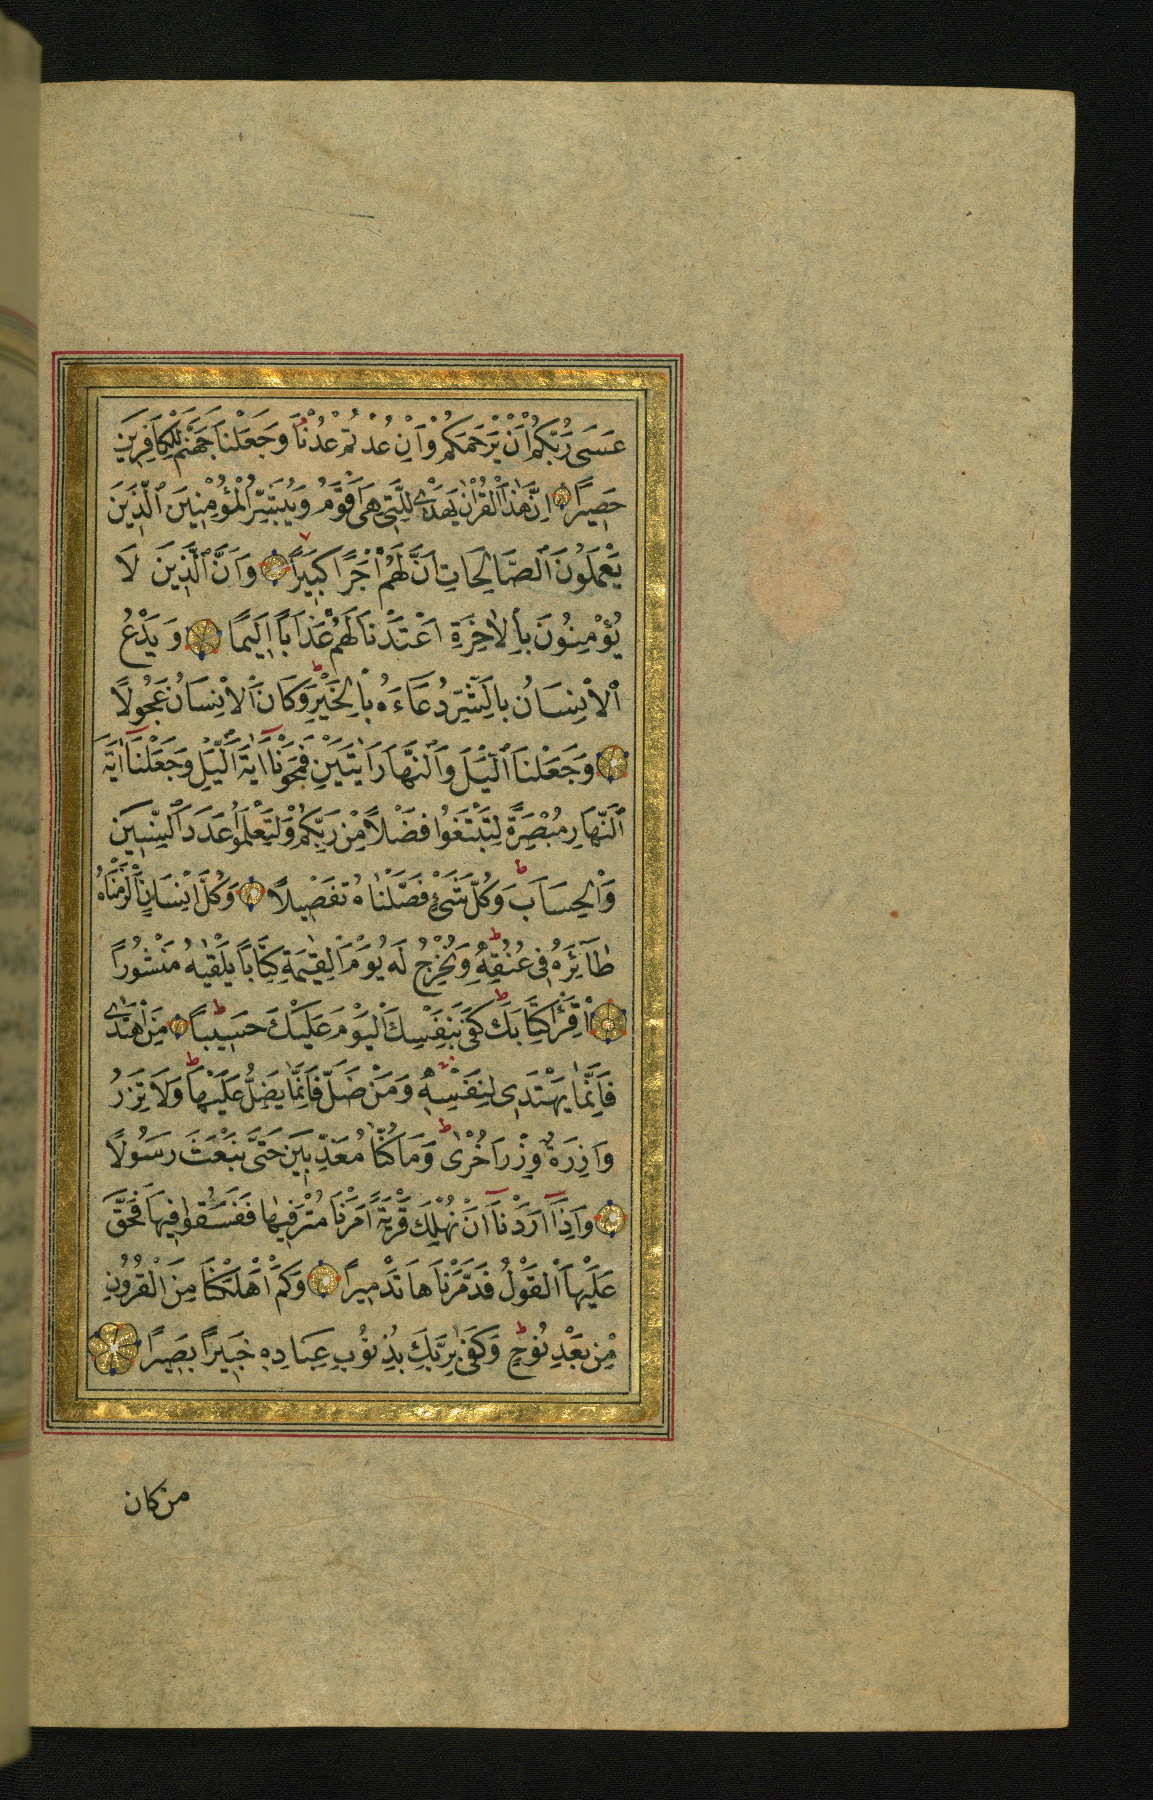 عَسَى رَبُّكُمْ اَنْ يَرْحَمَكُمْ وَاِنْ عُدْتُمْ عُدْنَا وَجَعَلْنَا جَهَنَّمَ لِلْكَافِرِينَ
حَصِيرًا اِنَّ هٰذَا الْقُرْاٰنَ يَهْدٖى لِلَّتٖى هِىَ اَقْوَمُ وَيُبَشِّرُ الْمُؤْمِنٖينَ الَّذٖينَ
يَعْمَلُونَ الصَّالِحَاتِ اَنَّ لَهُمْ اَجْرًا كَبٖيرًا وَاَنَّ الَّذٖينَ لَا
يُؤْمِنُونَ بِالْاٰخِرَةِ اَعْتَدْنَا لَهُمْ عَذَابًا اَلٖيمًا وَيَدْعُ
الْاِنْسَانُ بِالشَّرِّ دُعَاءَهُ بِالْخَيْرِ وَكَانَ الْاِنْسَانُ عَجُولًا
وَجَعَلْنَا الَّيْلَ وَالنَّهَارَ اٰيَتَيْنِ فَمَحَوْنَا اٰيَةَ الَّيْلِ وَجَعَلْنَا اٰيَةَ
النَّهَارِ مُبْصِرَةً لِتَبْتَغُوا فَضْلًا مِنْ رَبِّكُمْ وَلِتَعْلَمُوا عَدَدَ السِّنٖينَ
وَالْحِسَابَ وَكُلَّ شَىْءٍ فَصَّلْنَاهُ تَفْصٖيلًا وَكُلَّ اِنْسَانٍ اَلْزَمْنَاهُ
طَآئِرَهُ فٖى عُنُقِهٖ وَنُخْرِجُ لَهُ يَوْمَ الْقِيٰمَةِ كِتَابًا يَلْقٰيهُ مَنْشُورًا
اِقْرَأْ كِتَابَكَ كَفٰى بِنَفْسِكَ الْيَوْمَ عَلَيْكَ حَسٖيبًا مَنِ اهْتَدٰى
فَاِنَّمَا يَهْتَدٖى لِنَفْسِهٖ وَمَنْ ضَلَّ فَاِنَّمَا يَضِلُّ عَلَيْهَا وَلَا تَزِرُ
وَازِرَةٌ وِزْرَ اُخْرٰى وَمَا كُنَّا مُعَذِّبٖينَ حَتَّى نَبْعَثَ رَسُولًا
وَاِذَا اَرَدْنَا اَنْ نُهْلِكَ قَرْيَةً اَمَرْنَا مُتْرَفٖيهَا فَفَسَقُوا فٖيهَا فَحَقَّ
عَلَيْهَا الْقَوْلُ فَدَمَّرْنَاهَا تَدْمٖيرًا وَكَمْ اَهْلَكْنَا مِنَ الْقُرُونِ
مِنْ بَعْدِ نُوحٍ وَكَفٰى بِرَبِّكَ بِذُنُوبِ عِبَادِهٖ خَبٖيرًا بَصٖيرًا
من كان